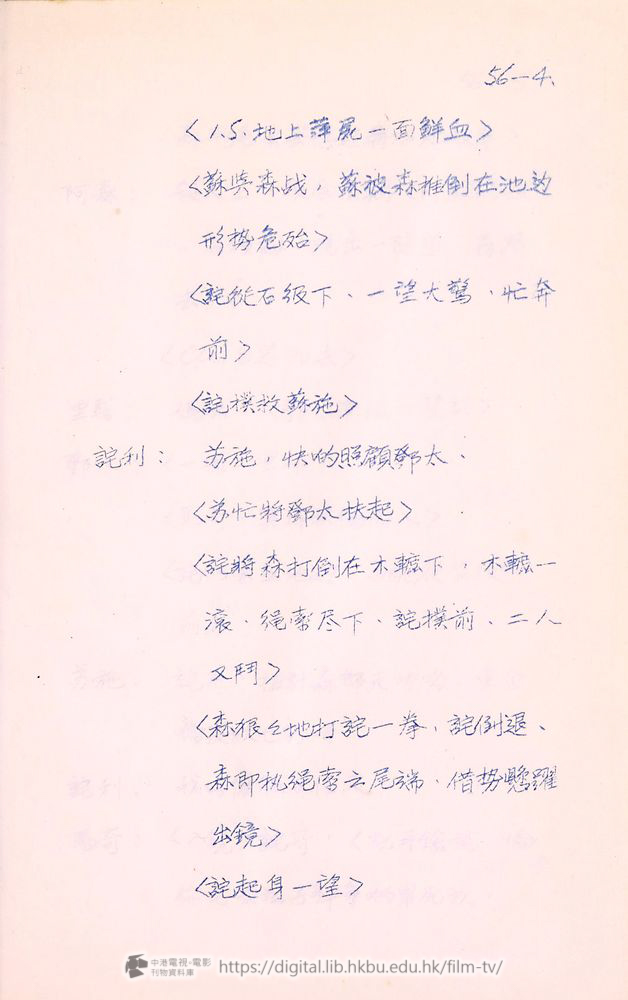 56—4、
〈I.S.地上萍屍一面鮮血〉
〈蘇與森战，蘇被森推倒在池边
形势危殆〉
〈詫從石级下、一望大驚、忙奔
前〉
〈詫撲救蘇施〉
詫利：苏施，快的照顧鄧太、
〈苏忙將鄧太扶起〉
〈詫將森打倒在木轆下，木轆一
滾、绳索尽下、詫撲前、二人
又鬥〉
〈森狠々地打詫一拳、詫倒退、
森即执绳索之尾端、借势懸躍
出鏡〉
〈詫起身一望〉
中港電視·電影
刊物資料庫
https://digital.lib.hkbu.edu.hk/film-tv/